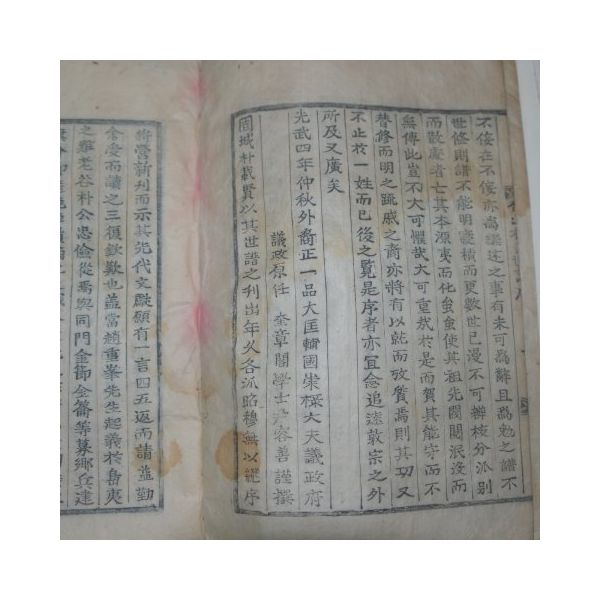 不佞在不佞亦爲譔述之事有未可爲辭且爲勉之譜不
世修則譜不能明
縱橫而更數世已漫不可辨枝分派別
而散處者亡其本源夷而化
蚩使其祖先閥閱泯沒而
無傳此豈不大可懼哉大可重哉於是而賀其能守而不
替修而明之疎戚之裔亦將有以就而攷質焉則其功又
不止於一姓而已後之覽是序者亦宜念追遠敦宗之外
所及又廣矣
光武四年仲秋外裔正一品大匡輔國崇祿大夫議政府
議政原任奎章閣學士尹容善謹撰
固城朴載賢以其世譜之刊出年久各派昭穆無以繼序
將營新刊而示其先代文獻顧有一言四五返而請益勤
余受而讀之三復欽歎也盖當趙重峯先生起義於島夷
之難老谷朴公忠儉從焉與同門金節金籥等募鄕兵達